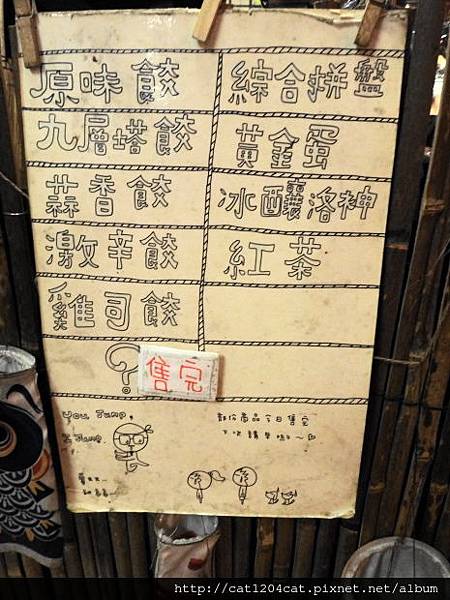 原味餃 綜合拼盤
九層塔餃 黃金蛋
蒜香餃 冰釀洛神
激辛餃 紅茶
雞可餃
? 售完
You Jump,
I Jump
部份商品今日售完
下次請早喔!~
http://cat1204cat.pixnet.net/album